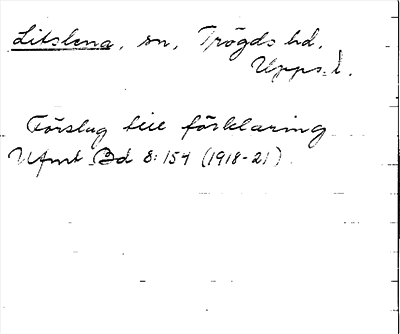 Litslena, sn, Trögds hd,
Upps. l.
Förslag till förklaring
UFmt Bd 8: 154 (1918-21)